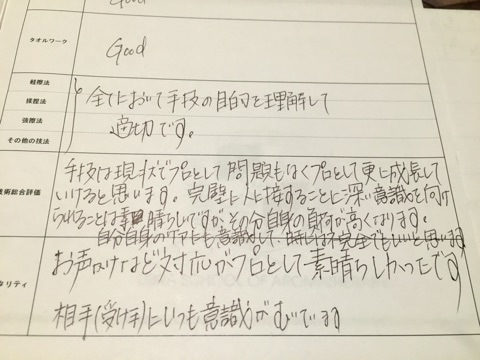 Good
タオルワーク
Good
軽擦法
揉捏法
強擦法
その他の技法
全てにおいて手技の目的を理解して
適切です。
技術総合評価
手技は現状でプロとして問題もなくプロとして更に成長して
いけると思います。完璧に人に接することに深い意識を向け
られることは素晴らしいですがその分自身の負荷が高くなります。
自分自身のケアにも意識して、時には不完全でもいいと思います
お声かけなど対応がプロとして素晴らしかったです
タリティ
相手(受け手)にいつも意識がむいてます